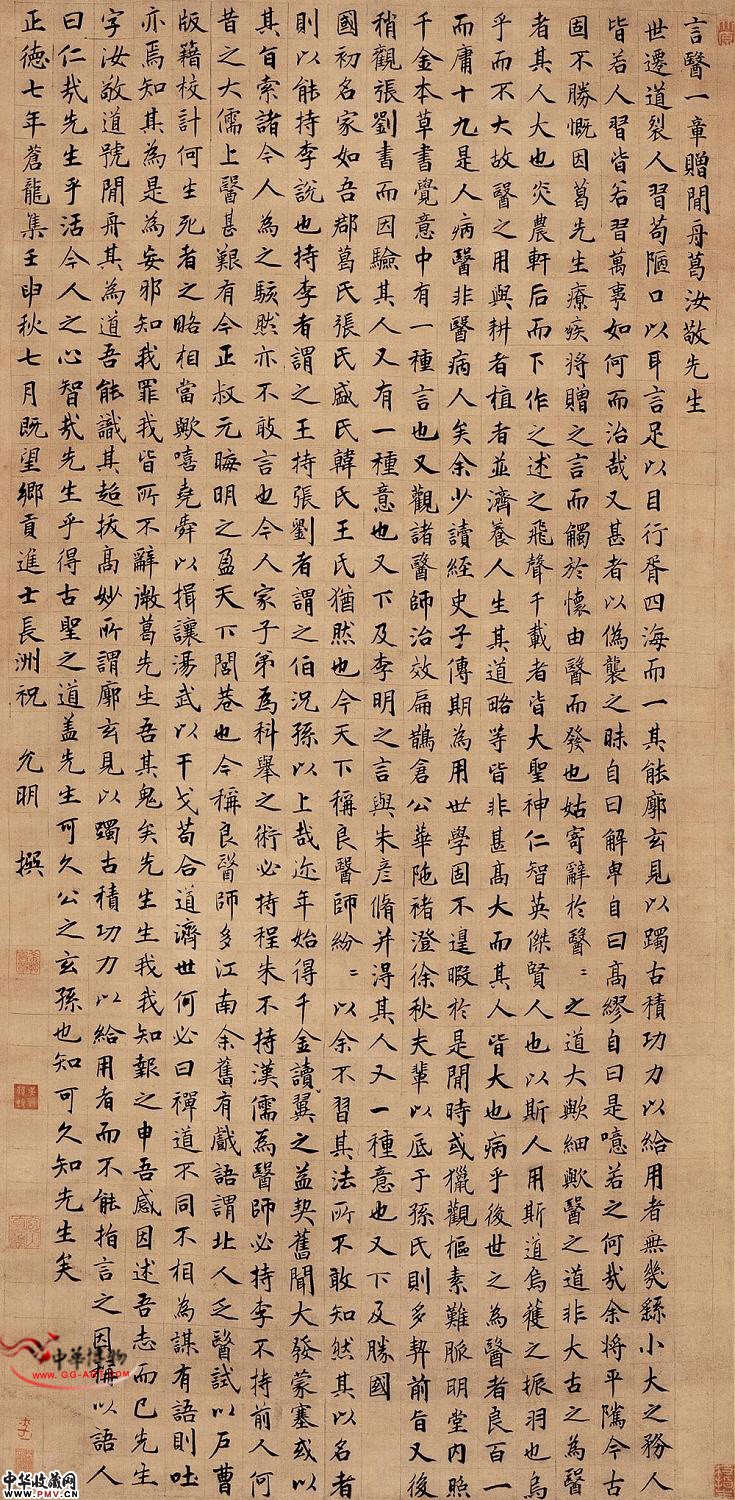 言醫一章贈閒舟葛汝敬先生
世遷道裂人習苟陋口以耳言足以目行胥四海而一其能廓玄見以躅古積功力以給用者無幾繇小大之務人
皆若人習皆若習萬事如何而治哉又甚者以偽襲之昧自曰解卑自曰高繆自曰是噫若之何哉余將平隲今古
固不勝慨因葛先生療疾將贈之言而觸於懷由醫而發也姑寄辭於醫〻之道大歟細歟醫之道非大古之為醫
者其人大也炎農軒后而下作之述之飛聲千載者皆大聖神仁智英傑賢人也以斯人用斯道烏獲之振羽也烏
乎而不大故醫之用與耕者植者並濟養人生其道略等皆非甚高大而其人皆大也病乎後世之為醫者良百一
而庸十九是人病醫非醫病人矣余少讀經史子傳期為用世學固不遑暇於是閒時或獵觀樞素難脈明堂內照
千金本草書覺意中有一種言也又觀諸醫師治效扁鵲倉公華陁褚澄徐秋夫輩以底于孫氏則多契前旨又後
稍觀張劉書而因驗其人又有一種意也又下及李明之言與朱彥脩并得其人又一種意也又下及勝國
國初名家如吾郡葛氏張氏盛氏韓氏王氏猶然也今天下稱良醫師紛〻以余不習其法所不敢知然其以名者
則以能持李說也持李者謂之王持張劉者謂之伯況孫以上哉迩年始得千金讀翼之益契舊聞大發蒙塞或以
其旨索諸今人為之駭然亦不敢言也今人家子弟為科舉之術必持程朱不持漢儒為醫師必持李不持前人何
昔之大儒上醫甚艱有今正叔元晦明之盈天下閭巷也今稱良醫師多江南余舊有戲語謂北人乏醫試以戶曹
版籍校計何生死者之略相當歟嘻堯舜以揖讓湯武以干戈苟合道濟世何必曰禪道不同不相為謀有語則吐
亦焉知其為是為妄邪知我罪我皆所不辭澈葛先生吾其鬼矣先生生我我知報之申吾感因述吾志而已先生
字汝敬道號閒舟其為道吾能識其超拔高妙所謂廓玄見以躅古積功力以給用者而不能指言之因稱以語人
曰仁哉先生乎活今人之心智哉先生乎得古聖之道盖先生可久公之玄孫也知可久知先生矣
正德七年蒼龍集壬申秋七月既望鄉貢進士長洲祝允明撰
中華博物
www.GG-ART.com
中华收藏网
www.PMV.CN